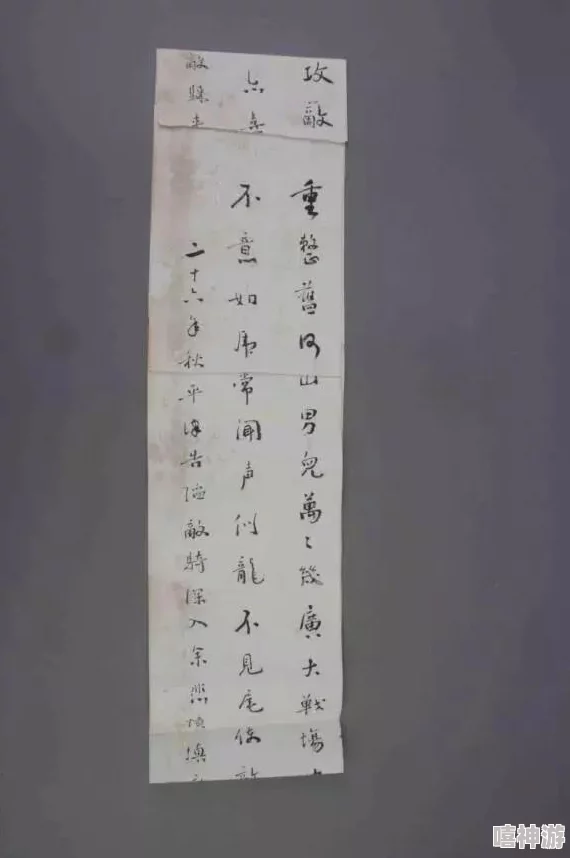 攻敵
重整舊河山男兒萬〻幾廣大戰場
不意如虎常聞声似龍不見尾使敵
二十六年秋平津告陷敵騎深入余悲憤填
嘻神游